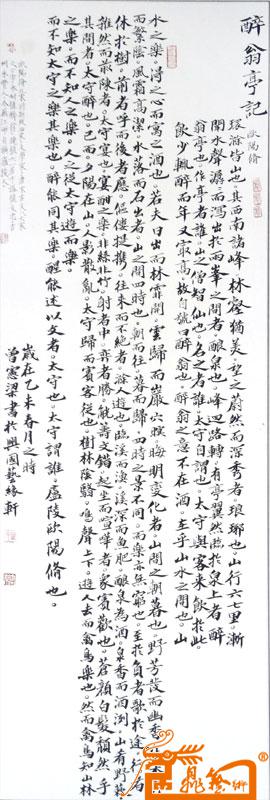 醉翁亭記
欧陽脩
環滁皆山也。其西南諸峰林壑猶美。望之蔚然而深秀者琅琊也。山行六七里。漸
聞水聲潺潺而瀉出於兩峯之間者釀泉也。峰迴路轉。有亭翼然臨於泉上者醉
翁亭也。作亭者誰。山之僧智仙也。名之者誰。太守自謂也。太守與客來飲於此。
飲少輒醉而年又最高故自號曰醉翁也。醉翁之意不在酒。在乎山水之間也。山
水之樂。得之心而寓之酒也。若夫日出而林霏開。雲歸而巖穴暝。晦明變化者山間之朝暮也。野芳發而幽香。
而繁陰風霜高潔。水落而石出者山之間四時也。朝而往。暮而歸。四時之景不同。而樂亦無窮也。至於負者歌於途。行者
休於樹。前者呼而後者應。傴僂提攜。往來而不絕者。滁遊也。臨溪而漁溪深而魚肥。釀泉為酒。泉香而酒洌。山肴野蔌
雜然而前陳者。太守宴也。宴酣之樂。非絲非竹。射者中。弈者勝。觥籌交錯。起坐而諠譁者。眾賓歡也。蒼顏白髮頹然乎
其間者。太守醉也。已而。夕陽在山。人影散亂。太守歸而賓客從也。樹林陰翳。鳴聲上下。遊人去而禽鳥樂也。然而禽鳥知山林
之樂。而不知人之樂。人之從太守遊而樂。
而不知太守之樂其樂也。醉能同其樂。醒能述以文者。太守也。太守謂誰。廬陵歐陽脩也。
歲在乙未春月之時
曾憲梁書於興國藝緣軒